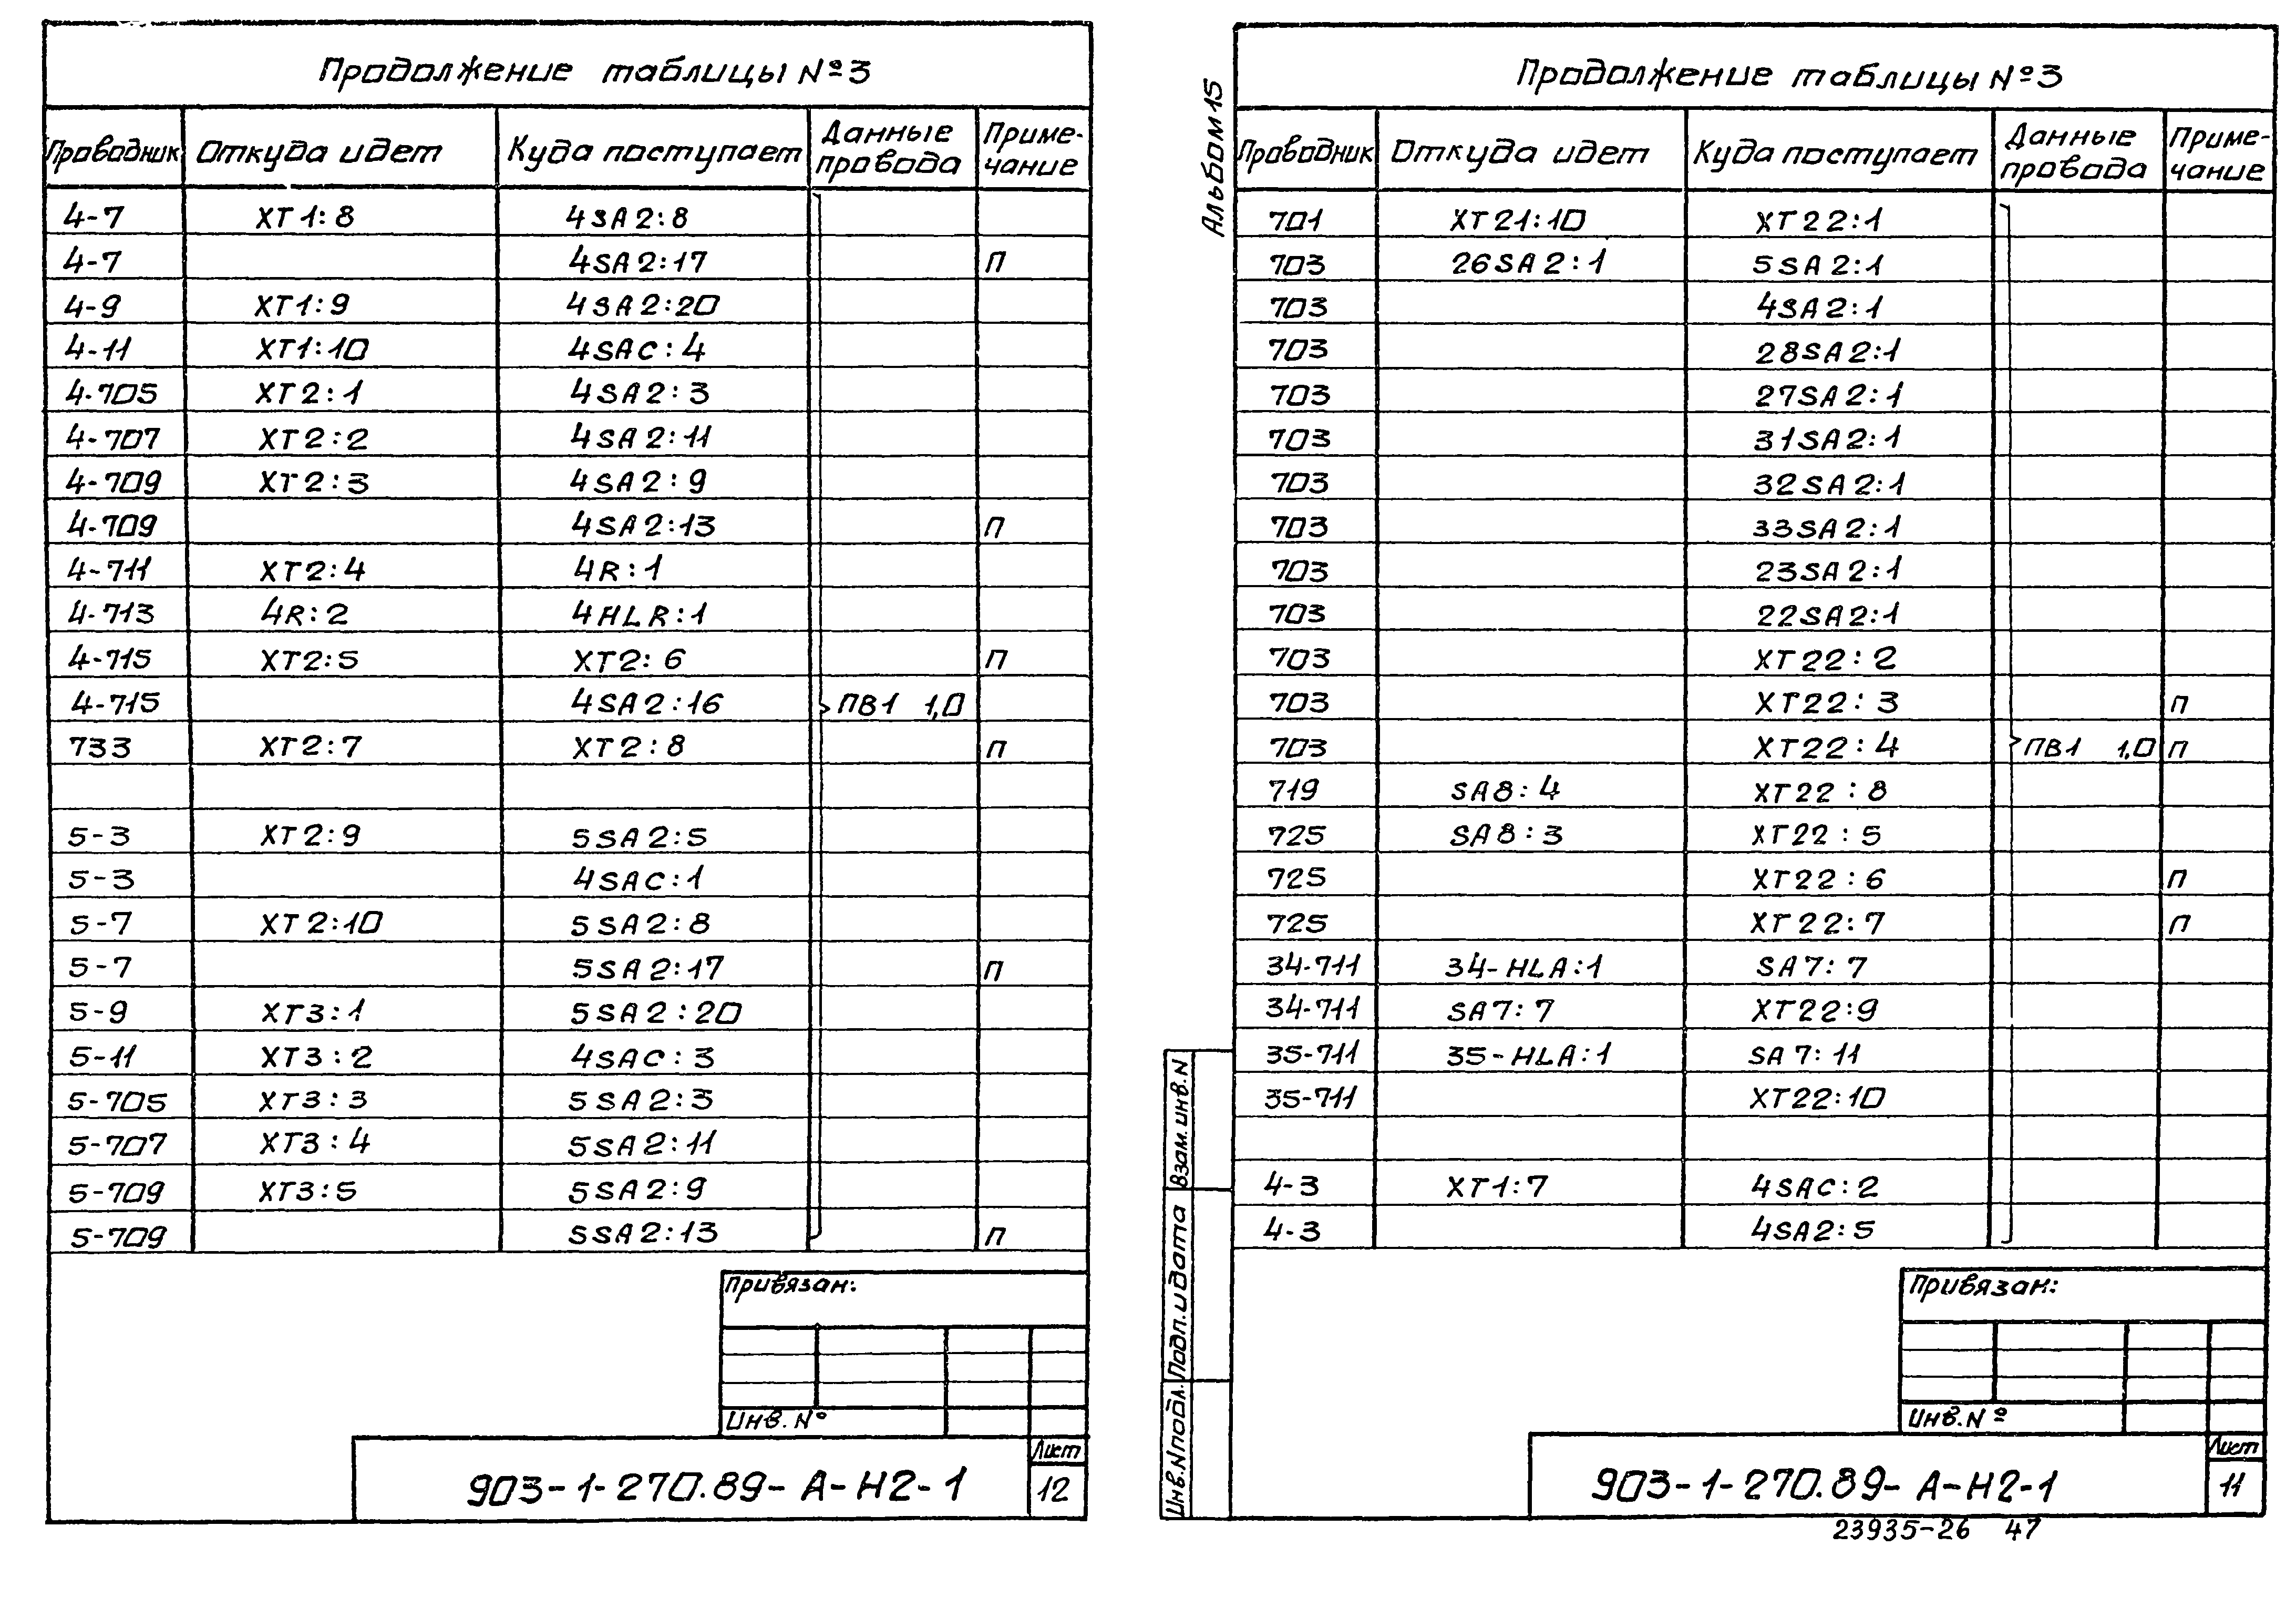 Продолжение таблицы №3
Проводник Откуда идет Куда поступает Данные провода Приме-чание
4-7 XT1:8 4SA2:8
4-7 4SA2:17 П
4-9 XT1:9 4SA2:20
4-11 XT1:10 4SAC:4
4-705 XT2:1 4SA2:3
4-707 XT2:2 4SA2:11
4-709 XT2:3 4SA2:9
4-709 4SA2:13 П
4-711 XT2:4 4R:1
4-713 4R:2 4HLR:1
4-715 XT2:5 XT2:6 П
4-715 4SA2:16 ПВ1 1,0
733 XT2:7 XT2:8 П
5-3 XT2:9 5SA2:5
5-3 4SAC:1
5-7 XT2:10 5SA2:8
5-7 5SA2:17 П
5-9 XT3:1 5SA2:20
5-11 XT3:2 4SAC:3
5-705 XT3:3 5SA2:3
5-707 XT3:4 5SA2:11
5-709 XT3:5 5SA2:9
5-709 5SA2:13 П
Привязан:
Инв.№
903-1-270.89-А-Н2-1
Лист
12
Альбом 15
Продолжение таблицы №3
Проводник Откуда идет Куда поступает Данные провода Приме-чание
701 XT21:10 XT22:1
703 26SA2:1 5SA2:1
703 4SA2:1
703 28SA2:1
703 27SA2:1
703 31SA2:1
703 32SA2:1
703 33SA2:1
703 23SA2:1
703 22SA2:1
703 XT22:2
703 XT22:3 П
703 XT22:4 ПВ1 1,0 П
719 SA8:4 XT22:8
725 SA8:3 XT22:5
725 XT22:6 П
725 XT22:7 П
34-711 34-HLA:1 SA7:7
34-711 SA7:7 XT22:9
35-711 35-HLA:1 SA7:11
35-711 XT22:10
4-3 XT1:7 4SAC:2
4-3 4SA2:5
Взам.инв.N
Подп.и дата
Инв.N подл.
Привязан:
Инв.№
903-1-270.89-А-Н2-1
Лист
11
23935-26 47